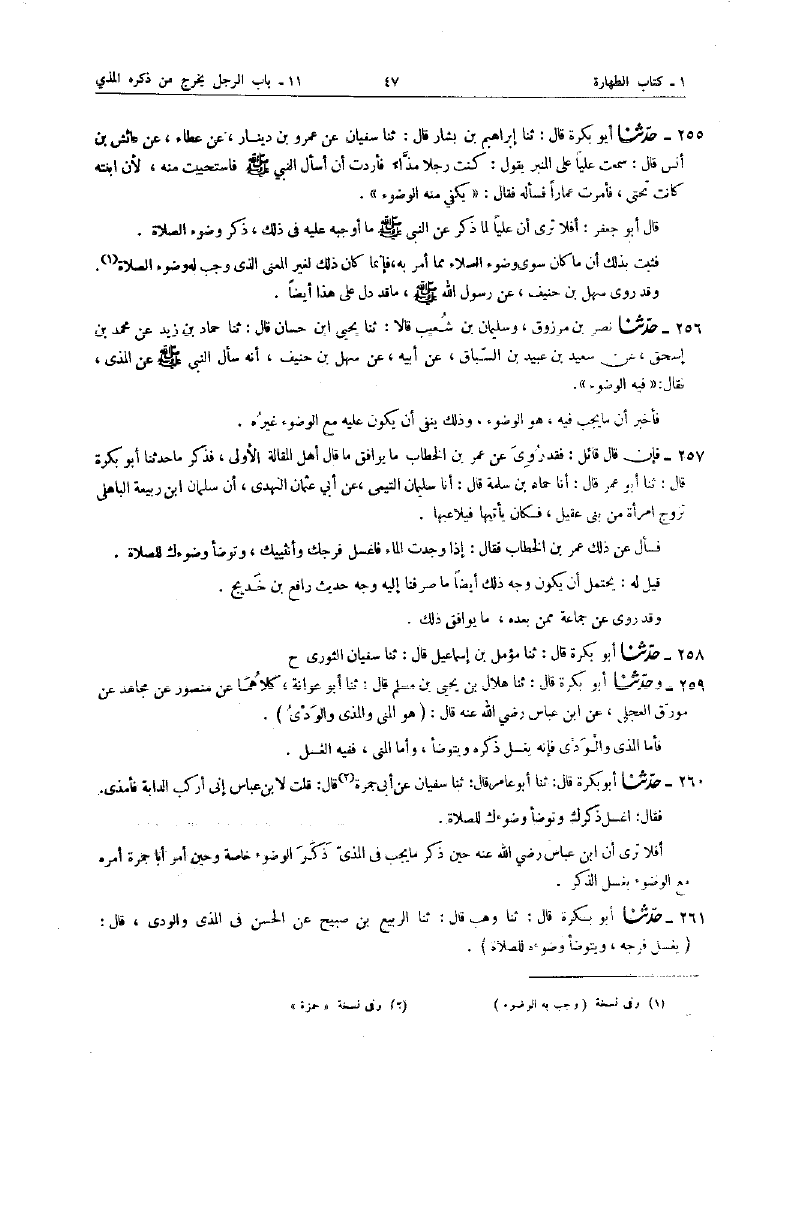 ١ ـ كتاب الطهارة ٤٧ ١١ ـ باب الرجل يخرج من ذكره المذي
٢٥٥ ـ حدّثنا أبو بكرة قال : ثنا إبراهيم بن بشار قال : ثنا سفيان عن عمرو بن دينار ، عن عطاء ، عن عائش بن
أنس قال : سمعت علياً على المنبر يقول : كنت رجلا مذَّاء فأردت أن أسأل النبي ﷺ فاستحييت منه ، لأن ابنته
كانت تحتى ، فأمرت عماراً فسأله فقال : « يكفي منه الوضوء » .
قال أبو جعفر : أفلا ترى أن علياً لما ذكر عن النبي ﷺ ما أوجبه عليه فى ذلك ، ذكر وضوء الصلاة .
فثبت بذلك أن ما كان سوى وضوء الصلاء مما أمر به،فإنما كان ذلك لغير المعنى الذى وجب له وضوء الصلاة(١).
وقد روى سهل بن حنيف ، عن رسول الله ﷺ ، ماقد دل على هذا أيضاً .
٢٥٦ ـ حدّثنا نصر بن مرزوق ، وسليمان بن شُعيب قالا : ثنا يحيى ابن حسان قال : ثنا حماد بن زيد عن محمد بن
إسحق ، عن سعيد بن عبيد بن السّباق ، عن أبيه ، عن سهل بن حنيف ، أنه سأل النبي ﷺ عن المذى ،
فقال:« فيه الوضوء ».
فأخبر أن مايجب فيه ، هو الوضوء . وذلك ينفى أن يكون عليه مع الوضوء غيرُه .
٢٥٧ ـ فإن قال قائل : فقد رُوِىَ عن عمر بن الخطاب ما يوافق ما قال أهل المقالة الأولى ، فذكر ماحدثنا أبو بكرة
قال : ثنا أبو عمر قال : أنا حماد بن سلمة قال : أنا سليمان التيمى ،عن أبي عثمان النهدى ، أن سليمان ابن ربيعة الباهلى
تزوج امرأة من بنى عقيل ، فكان يأتيها فيلاعبها .
فسأل عن ذلك عمر بن الخطاب فقال : إذا وجدت الماء فاغسل فرجك وأنثييك ، وتوضأ وضوءك للصلاة .
قيل له : يحتمل أن يكون وجه ذلك أيضاً ما صرفنا إليه وجه حديث رافع بن خَديج .
وقد روى عن جماعة ممن بعده ، ما يوافق ذلك .
٢٥٨ ـ حدّثنا أبو بكرة قال : ثنا مؤمل بن إسماعيل قال : ثنا سفيان الثورى ح
٢٥٩ ـ وحدّثنا أبو بكرة قال : ثنا هلال بن يحيى بن مسلم قال : ثنا أبو عوانة ، كلاُهمَا عن منصور عن مجاهد عن
مورق العجلى ، عن ابن عباس رضي الله عنه قال : ( هو المنى والمذى والوَدْىُ ) .
فأما المذى والْوَدْى فإنه يغسل ذكره ويتوضأ ، وأما المنى ، ففيه الغسل .
٢٦٠ ـ حدّثنا أبوبكرة قال: ثنا أبوعامرقال: ثنا سفيان عن أبى جمرة(٢)قال: قلت لابن عباس إنى أركب الدابة فأمذى.
فقال: اغسل ذكرك وتوضأ وضوءك للصلاة .
أفلا ترى أن ابن عباس رضي الله عنه حين ذكر مايجب فى المذىّ ذَكَرَ الوضوء خاصة وحين أمر أبا جمرة أمره
مع الوضوء بغسل الذكر .
٢٦١ ـ حدّثنا أبو بكرة قال : ثنا وهب قال : ثنا الربيع بن صبيح عن الحسن فى المذى والودى ، قال :
( يغسل فرجه ، ويتوضأ وضوءه للصلاة ) .
(١) وفى نسخة ( وجب به الوضوء ) (٢) وفى نسخة « حمزة »